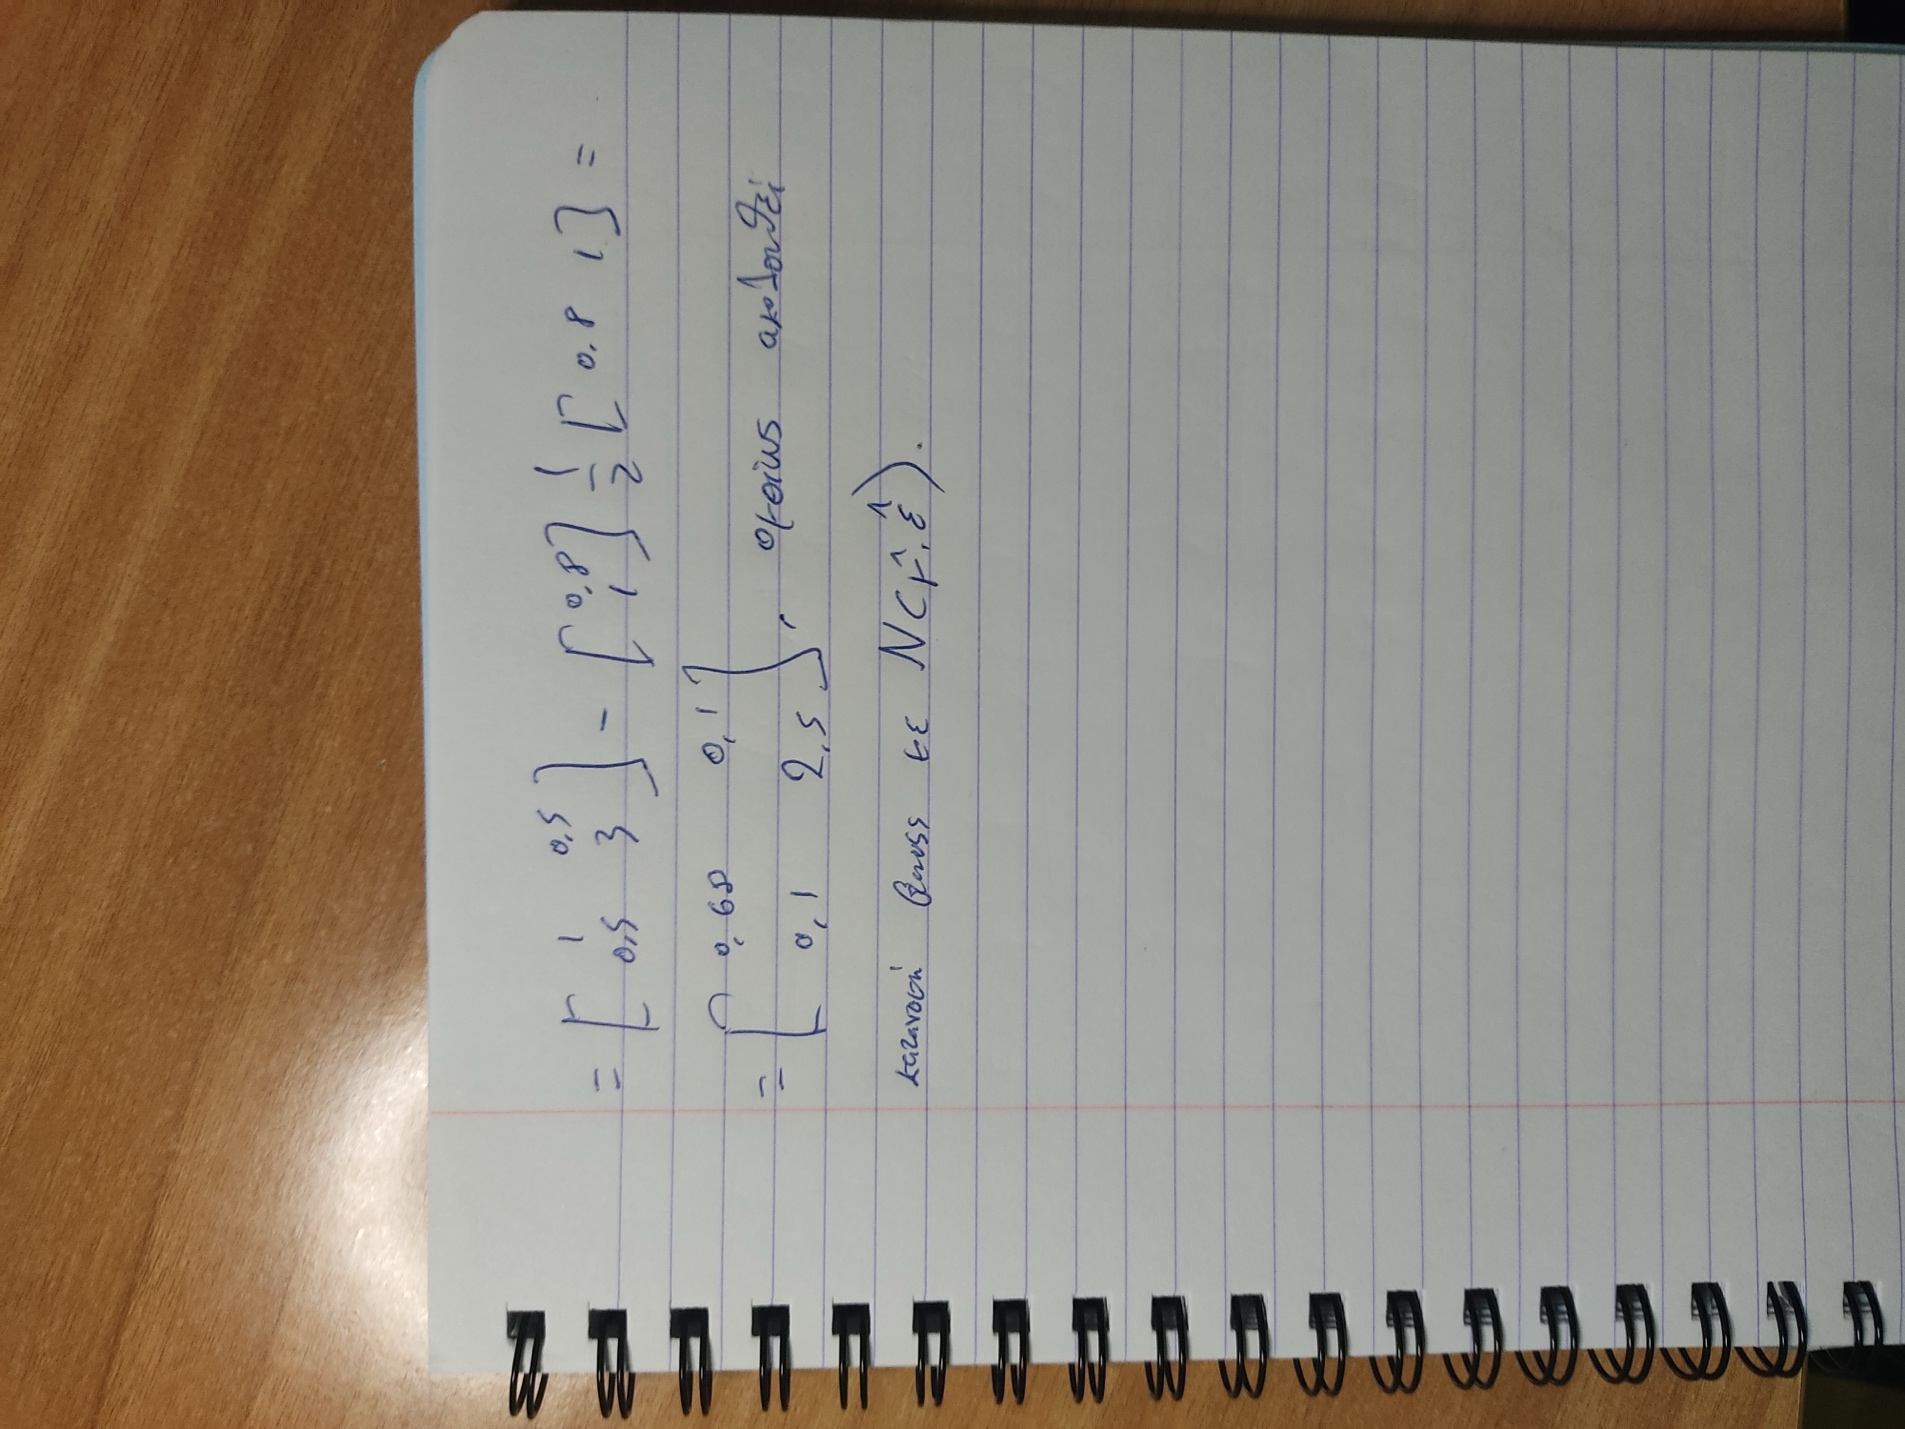 = [ 1 0,5 ; 0,5 3 ] - [ 0,8 ; 1 ] 1/2 [ 0.8 1 ] =
= [ 0,68 0,1 ; 0,1 2,5 ], ομοίως ακολουθεί
κατανομή Gauss με N(μ̂, ε̂).